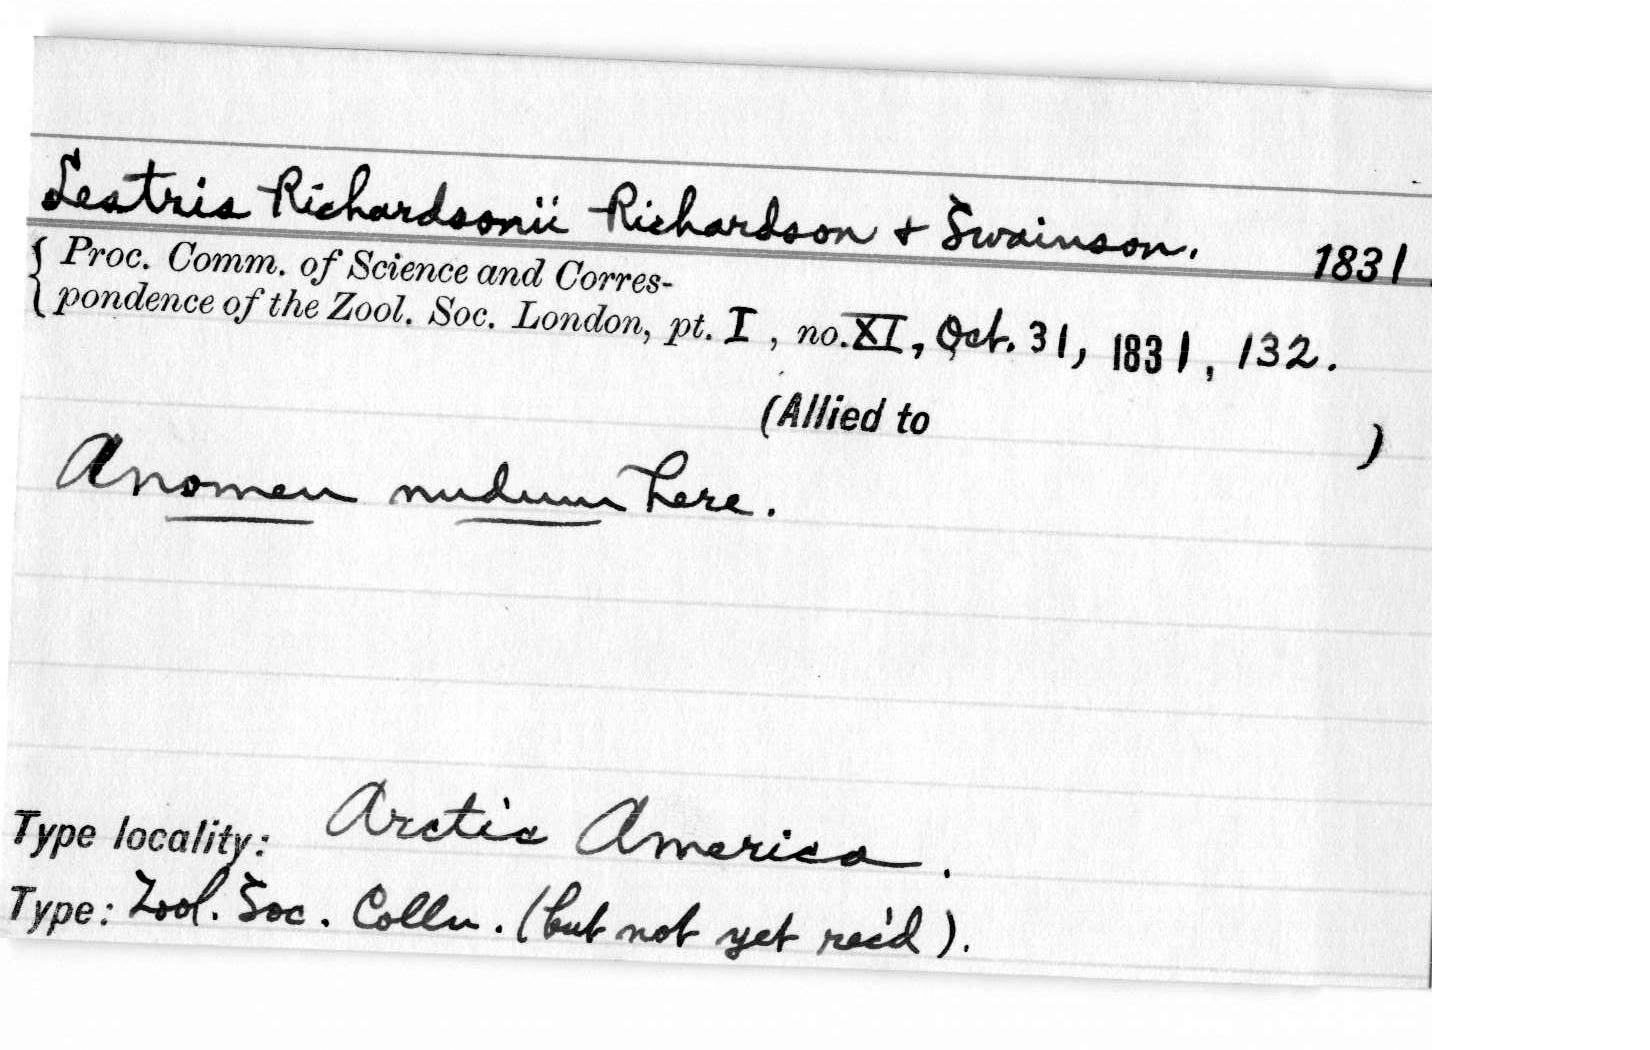 Lestris Richardsonii Richardson & Swainson. 1831
{ Proc. Comm. of Science and Corres-
pondence of the Zool. Soc. London, pt. I, no. XI, Oct. 31, 1831, 132.
(Allied to )
A nomen nudum here.
Type locality: Arctic America.
Type: Zool. Soc. Colln. (but not yet rec'd).